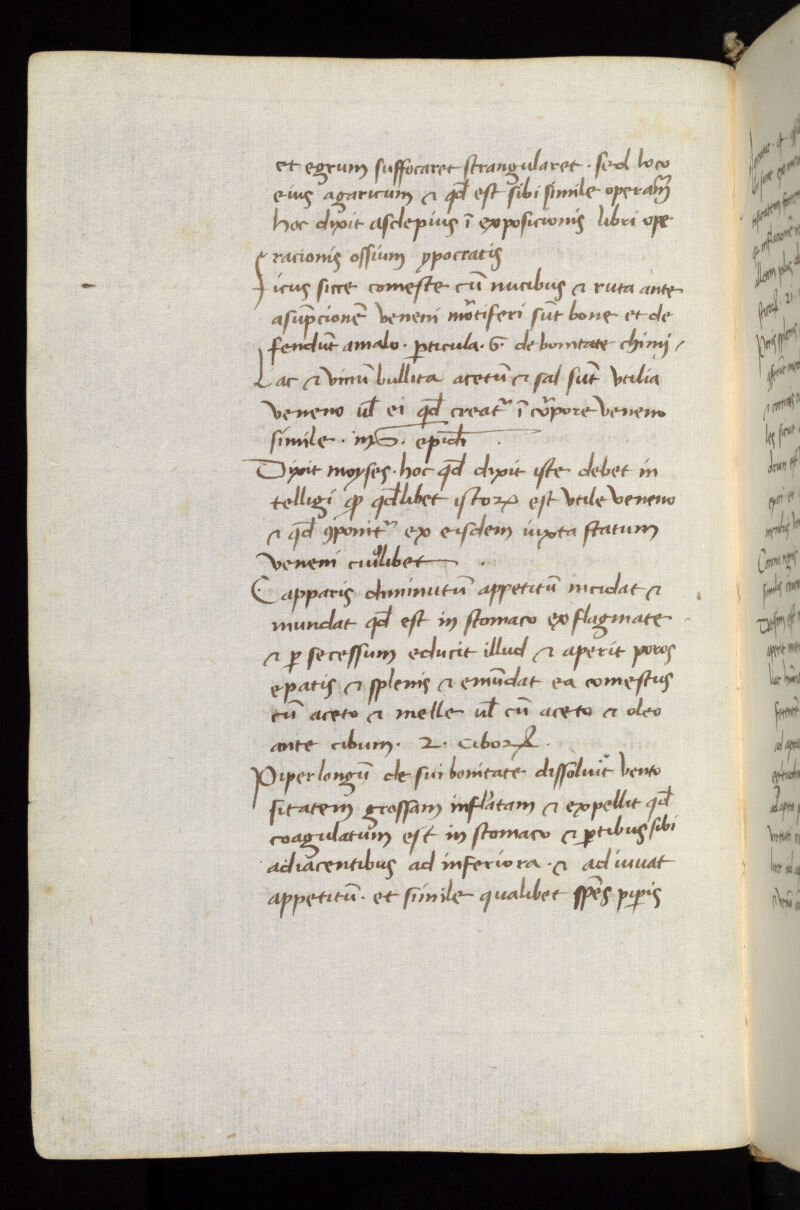 et egrum suffocaret strangularet · sed loco
eius agaricum ⁊ qd̄ est sibi simile operam̄
hoc dixit asclepius ī exposicionis libri ope
racionis ossium ypocratis
Ficus sicce comeste cū nucibus ⁊ ruta ante
asūpcionē veneni mortiferi sūt bone et de
fendūt amalo · ꝑticula · 6 · de bonitate chimj
Lac ⁊ vinū bullita acetū ⁊ sal sūt vtilia
veneno ul̄ ei qd̄ creatᷣ ī corpore veneno
simile ·
Dixit moyses · hoc qd̄ dixit iste debet in
telligi qd̄libet istoꝝ est vtile veneno
⁊ qd̄ ꝯponitᷣ ex eisdem iuxta statum
veneni cuiuslibet ·
Capparis diminutū appetitū incidat ⁊
mundat qd̄ est in stomaco ex flagmate
⁊ ꝑ secessum educit illud ⁊ aperit poros
epatis ⁊ splenis ⁊ emūdat ea comestus
cū aceto ⁊ melle ul̄ cū aceto ⁊ oleo
ante cibum · 2 · ciboꝝ ·
Piper longū de sui bonitate dissoluit vento
sitatem grossam inflatam ⁊ expellit qd̄
coagulatum est in stomaco ⁊ ꝑtibus sibi
adiacentibus ad inferiora · ⁊ adiuuat
appetitū · et simile qualibet spēs piꝑis